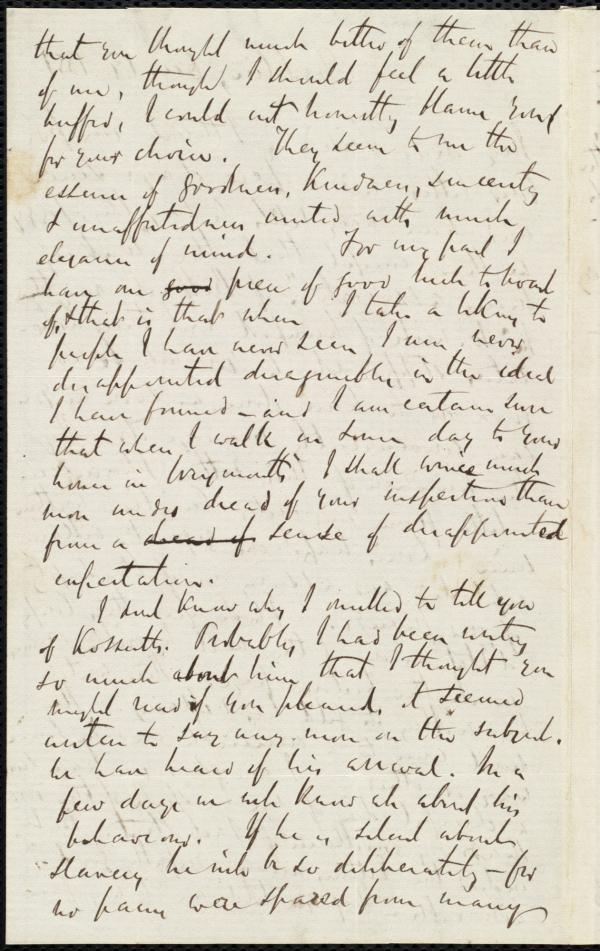 that you thought much better of them than
of me, though I should feel a little
huffed, I could not honestly blame you
for your choice. They seem to me the
essence of goodness, kindness, sincerity
& unaffectedness united with much
elegance of mind. For my part I
have one good piece of good luck to boast
of, & that is that when I take a liking to
people I have never seen I am never
disappointed disagreeably in the ideal
I have formed – and I am certain sure
that when I walk in some day to your
house in I shall wince much
more under dread of your inspection than
from a dread of sense of disappointed
expectation.
I dont know why I omitted to tell you
of Kossuth. Probably I had been writing
so much about him, that I thought you
might read if you pleased, it seemed
to say any more on the subject.
We have heard of his arrival. In a
few days we shall know all about his
behaviour. If he is silent about
Slavery he will be so deliberately – for
no pains were spared from many